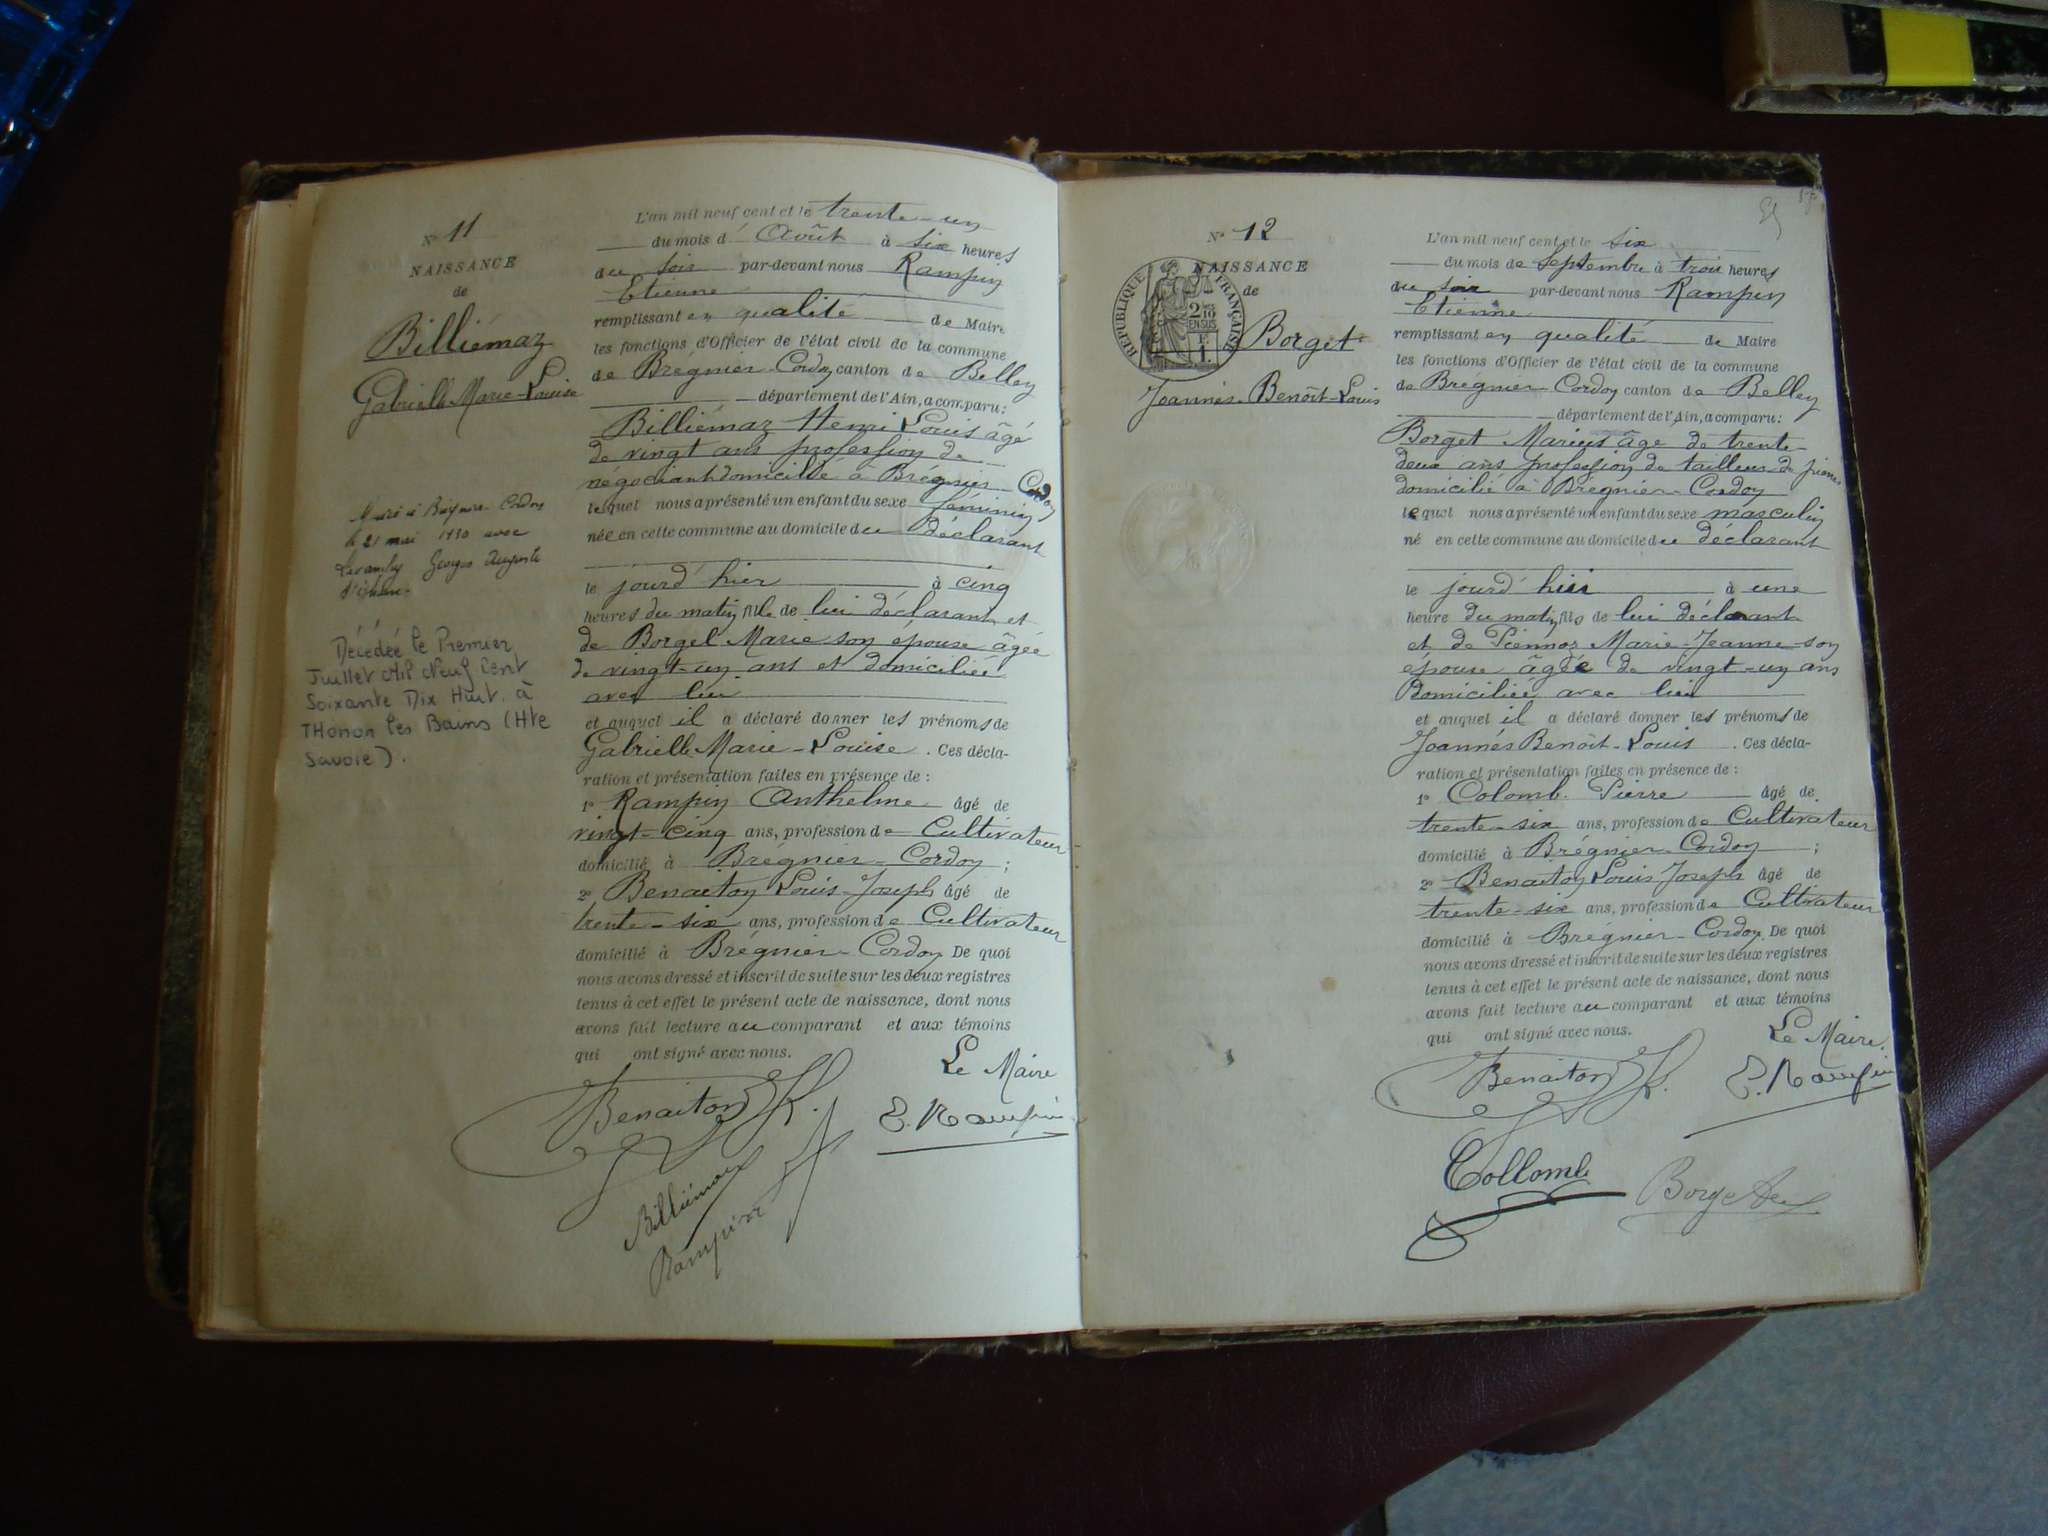 N° 11
NAISSANCE
de
Billiémaz
Gabrielle Marie-Louise
Marié à Brégnier-Cordon
le 21 mai 1920 avec
Georges Auguste
Décédée le Premier
Juillet Mil Neuf Cent
Soixante Dix Huit à
THonon les Bains (Hte
Savoie).
L'an mil neuf cent et le trente-un
du mois d' Août à six heures
du soir par-devant nous Rampin
Etienne
remplissant en qualité de Maire
les fonctions d'Officier de l'état civil de la commune
de Brégnier-Cordon canton de Belley
département de l'Ain, a comparu:
Billiémaz Henri Louis âgé
de vingt ans profession de
négociant domicilié à Brégnier-Cordon
lequel nous a présenté un enfant du sexe féminin
née en cette commune au domicile du déclarant
le jourd'hier à cinq
heures du matin, fille de lui déclarant et
de Borgel Marie son épouse âgée
de vingt-un ans et domiciliée
avec lui
et auquel il a déclaré donner les prénoms de
Gabrielle Marie-Louise. Ces décla-
ration et présentation faites en présence de:
1° Rampin Anthelme âgé de
vingt-cinq ans, profession de Cultivateur
domicilié à Brégnier-Cordon;
2° Benaiton Louis-Joseph âgé de
trente-six ans, profession de Cultivateur
domicilié à Brégnier-Cordon De quoi
nous avons dressé et inscrit de suite sur les deux registres
tenus à cet effet le présent acte de naissance, dont nous
avons fait lecture au comparant et aux témoins
qui ont signé avec nous.
Le Maire
Benaiton
E. Rampin
Billiémaz
Rampin
N° 12
NAISSANCE
de
RÉPUBLIQUE FRANÇAISE
2/10 EN SUS
F. 1.
Borget
Joannés-Benoît-Louis
L'an mil neuf cent et le six
du mois de Septembre à trois heures
du soir par-devant nous Rampin
Etienne
remplissant en qualité de Maire
les fonctions d'Officier de l'état civil de la commune
de Brégnier-Cordon canton de Belley
département de l'Ain, a comparu:
Borget Marius âgé de trente-
deux ans profession de tailleur de pierres
domicilié à Brégnier-Cordon
lequel nous a présenté un enfant du sexe masculin
né en cette commune au domicile du déclarant
le jourd'hier à une
heure du matin, fils de lui déclarant
et de Marie-Jeanne son
épouse âgée de vingt-un ans
domiciliée avec lui
et auquel il a déclaré donner les prénoms de
Joannés Benoît-Louis. Ces décla-
ration et présentation faites en présence de:
1° Colomb Pierre âgé de
trente-six ans, profession de Cultivateur
domicilié à Brégnier-Cordon;
2° Benaiton Louis Joseph âgé de
trente-six ans, profession de Cultivateur
domicilié à Brégnier-Cordon. De quoi
nous avons dressé et inscrit de suite sur les deux registres
tenus à cet effet le présent acte de naissance, dont nous
avons fait lecture au comparant et aux témoins
qui ont signé avec nous.
Le Maire.
Benaiton
E. Rampin
Collomb
Borget